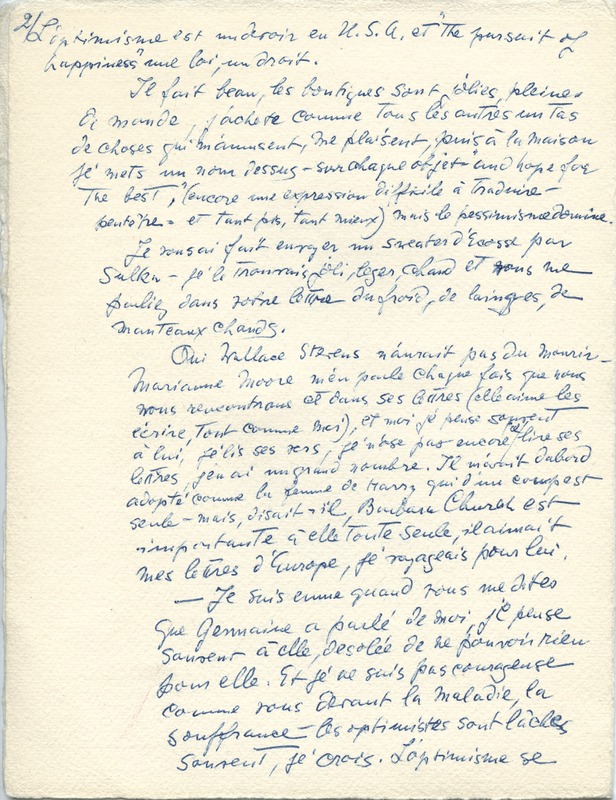 2/ L'optimisme est un devoir en U.S.A. et "The pursuit of
happiness" une loi, un droit.
Il fait beau, les boutiques sont jolies, pleines
de monde, j'achète comme tous les autres un tas
de choses qui m'amusent, me plaisent, puis à la maison
je mets un nom dessus - sur chaque objet - and hope for
the best", (encore une expression difficile à traduire -
peut être - et tant pis, tant mieux) mais le pessimisme domine.
Je vous ai fait envoyer un sweater d'Ecosse par
Sulka - je le trouvais joli, léger, chaud et vous me
parliez dans votre lettre du froid, de lainages, de
manteaux chauds.
Oui Wallace Stevens n'aurait pas du mourir -
Marianne Moore m'en parle chaque fois que nous
nous rencontrons et dans ses lettres (elle aime les
écrire, tout comme moi), et moi je pense souvent
à lui, je lis ses vers, je n'ose pas encore relire ses
lettres, j'en ai un grand nombre. Il m'avait d'abord
adopté comme la femme de Harry qui d'un compest
seule - mais, disait-il, Barbara Church est
importante à elle toute seule, il aimait
mes lettres d'Europe, je voyageais pour lui.
— Je suis emue quand vous me dites
que Germaine a parlé de moi, je pense
souvent à elle, desolée de ne pouvoir rien
pour elle. Et je ne suis pas courageuse
comme vous devant la maladie, la
souffrance - les optimistes sont lâches
souvent, je crois. L'optimisme se